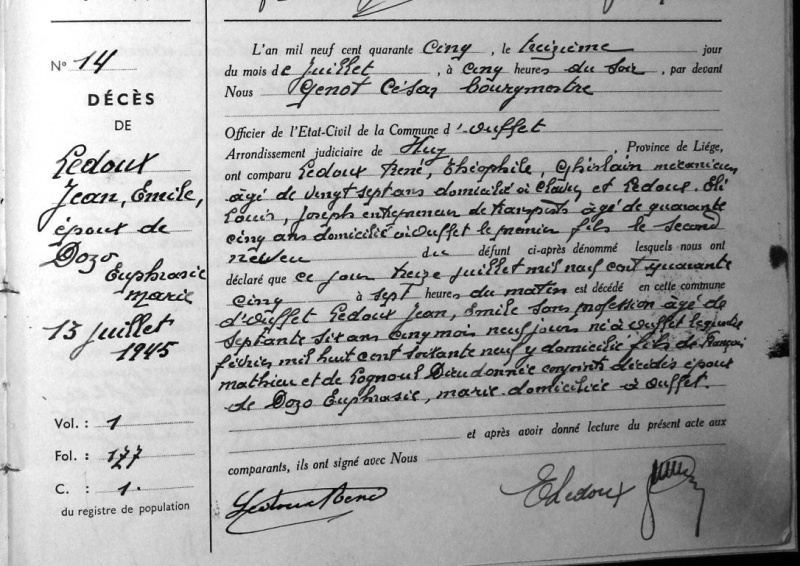 N° 14
DÉCÈS
DE
Ledoux
Jean, Emile,
époux de
Dozo
Euphrasie
Marie
13 juillet
1945
Vol. : 1
Fol. : 177
C. : 1.
du registre de population
L'an mil neuf cent quarante Cinq, le treizième jour
du mois de Juillet, à Cinq heures du soir, par devant
Nous Genot César bourgmestre
Officier de l'Etat-Civil de la Commune d'Ouffet
Arrondissement judiciaire de Huy, Province de Liége,
ont comparu Ledoux René, Théophile, Ghislain mécanicien
âgé de vingt sept ans domicilié à Clavier et Ledoux. Eli
Louis, Joseph entrepreneur de transports âgé de quarante
cinq ans domicilié à Ouffet le premier fils le second
neveu du défunt ci-après dénommé lesquels nous ont
déclaré que ce jour treize juillet mil neuf cent quarante
cinq à sept heures du matin est décédé en cette commune
d'Ouffet Ledoux Jean, Emile sans profession âgé de
septante six ans cinq mois neuf jours né à Ouffet le quatre
février mil huit cent soixante neuf y domicilié fils de François
Mathieu et de Lognoul Dieudonnée conjoints décédés époux
de Dozo Euphrasie, Marie domiciliée à Ouffet.
et après avoir donné lecture du présent acte aux
comparants, ils ont signé avec Nous
Ledoux René
E Ledoux